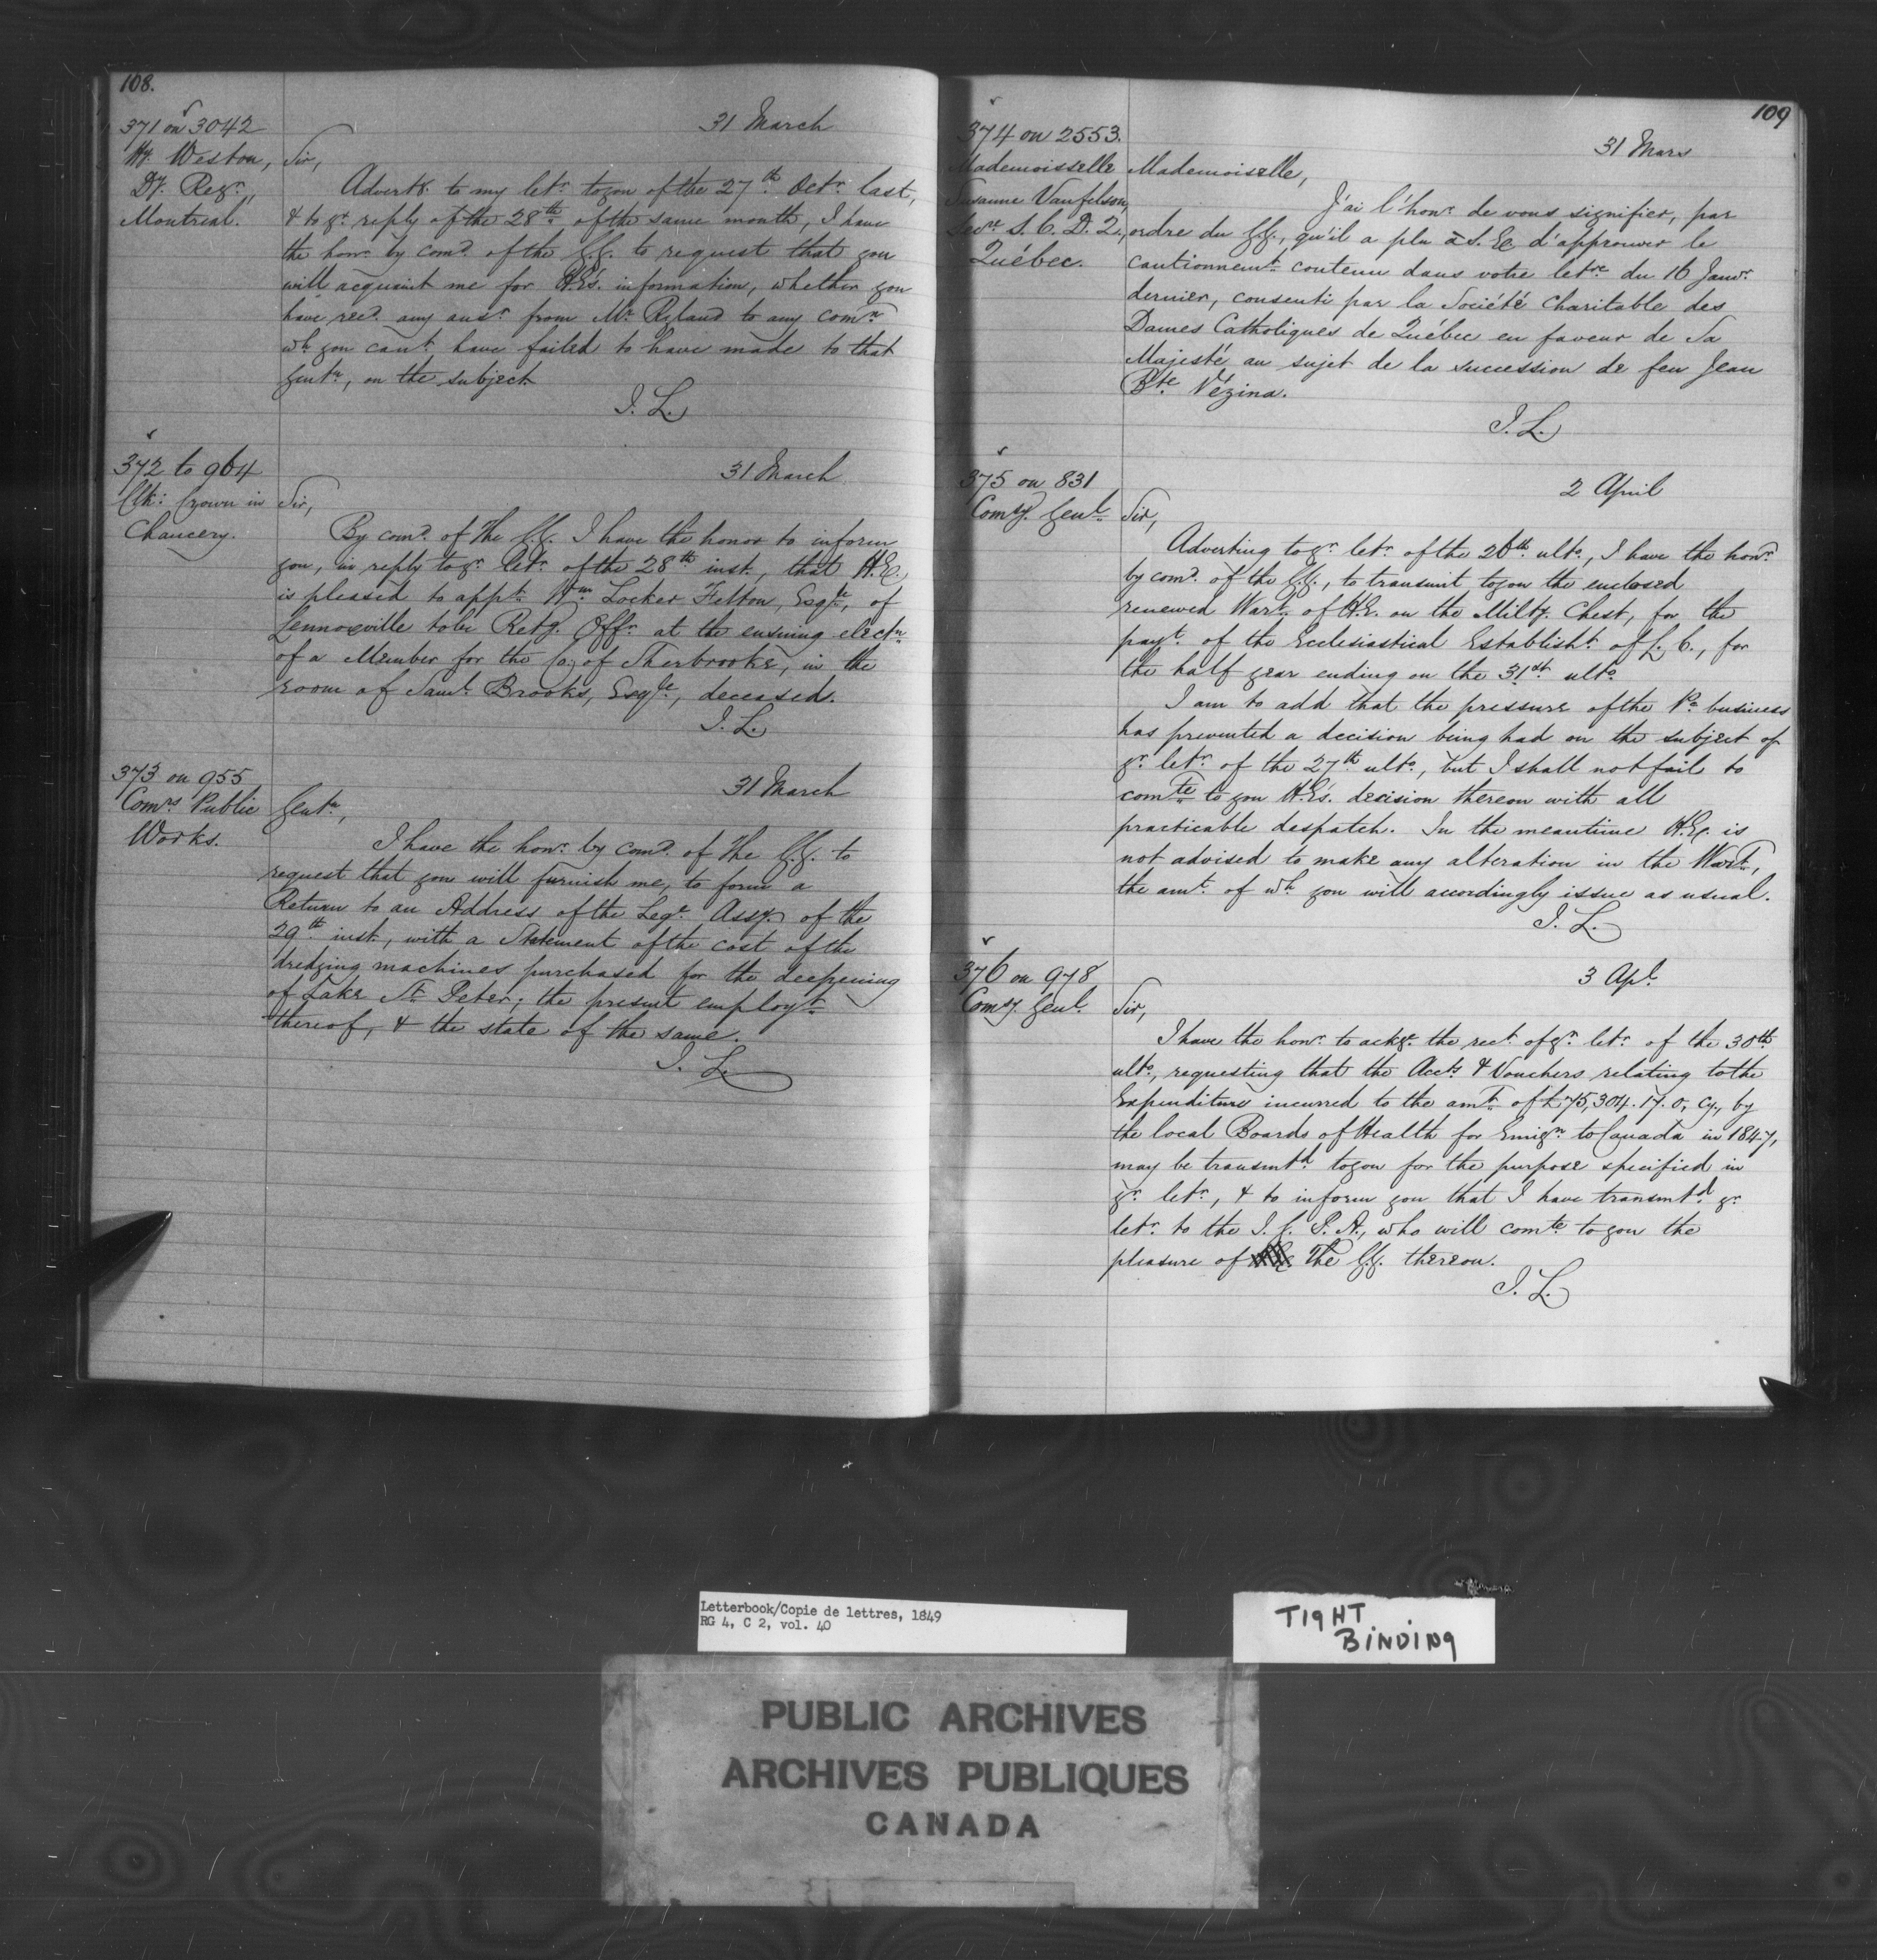 108.
371 on 3042
Hy. Weston,
Dy. Regr.,
Montreal.
31 March
Sir,
Advertg. to my letr. to you of the 27th Octr. last,
& to yr. reply of the 28th of the same month, I have
the honr. by comd. of the G.G. to request that you
will acquaint me for H.E's. information, whether you
have recd. any ansr. from Mr. Ryland to any comn.
wh. you cant. have failed to have made to that
Gentn., on the subject
J. L.
372 to 964
Clk: Crown in
Chancery.
31 March
Sir,
By comd. of the G.G. I have the honor to inform
you, in reply to yr. letr. of the 28th inst., that H.E.
is pleased to appt. Wm. Locker Felton, Esqre, of
Lennoxville to be Retg. Offr. at the ensuing electn.
of a Member for the Co. of Sherbrooke, in the
room of Saml. Brooks, Esqre, deceased.
J. L.
373 on 955
Comrs. Public
Works.
31 March
Gentn.,
I have the honr. by comd. of the G.G. to
request that you will furnish me, to form a
Return to an Address of the Lege. Assy. of the
29th inst., with a Statement of the cost of the
dredging machines purchased for the deepening
of Lake St. Peter; the present employt.
thereof, & the state of the same.
J. L.
109
374 on 2553.
Mademoisselle
Susanne Vanfelson,
Secre. S. C. D. 2.,
Québec.
31 Mars
Mademoiselle,
J'ai l'honr. de vous signifier, par
ordre du G.G., qu'il a plu à S. E. d'approuver le
cautionnemt. contenu dans votre letre. du 16 Janvr.
dernier, consenti par la Société Charitable des
Dames Catholiques de Québec en faveur de Sa
Majesté au sujet de la succession de feu Jean
Bte. Vézina.
J. L.
375 on 831
Comy. Genl.
2 April
Sir,
Adverting to yr. letr. of the 26th ulto., I have the honr.
by comd. of the G.G., to transmit to you the enclosed
renewed Wart. of H.E. on the Milty. Chest, for the
payt. of the Ecclesiastical Establisht. of L. C., for
the half year ending on the 31st ulto.
I am to add that the pressure of the Pc. business
has prevented a decision being had on the subject of
yr. letr. of the 27th ulto., but I shall not fail to
comte. to you H.E's. decision thereon with all
practicable despatch. In the meantime H.E. is
not advised to make any alteration in the Wart.,
the amt. of wh. you will accordingly issue as usual.
J. L.
376 on 978
Comy. Genl.
3 Apl.
Sir,
I have the honr. to ackge. the rect. of yr. letr. of the 30th
ulto., requesting that the Accts. & Vouchers relating to the
Expenditure incurred to the amt. of £75,304.17.0, Cy., by
the local Boards of Health for Emign. to Canada in 1847,
may be transmtd. to you for the purpose specified in
yr. letr., & to inform you that I have transmtd. yr.
letr. to the I. G. P. A., who will comte. to you the
pleasure of The G.G. thereon.
J. L.
Letterbook/Copie de lettres, 1849
RG 4, C 2, vol. 40
TIGHT
BINDING
PUBLIC ARCHIVES
ARCHIVES PUBLIQUES
CANADA